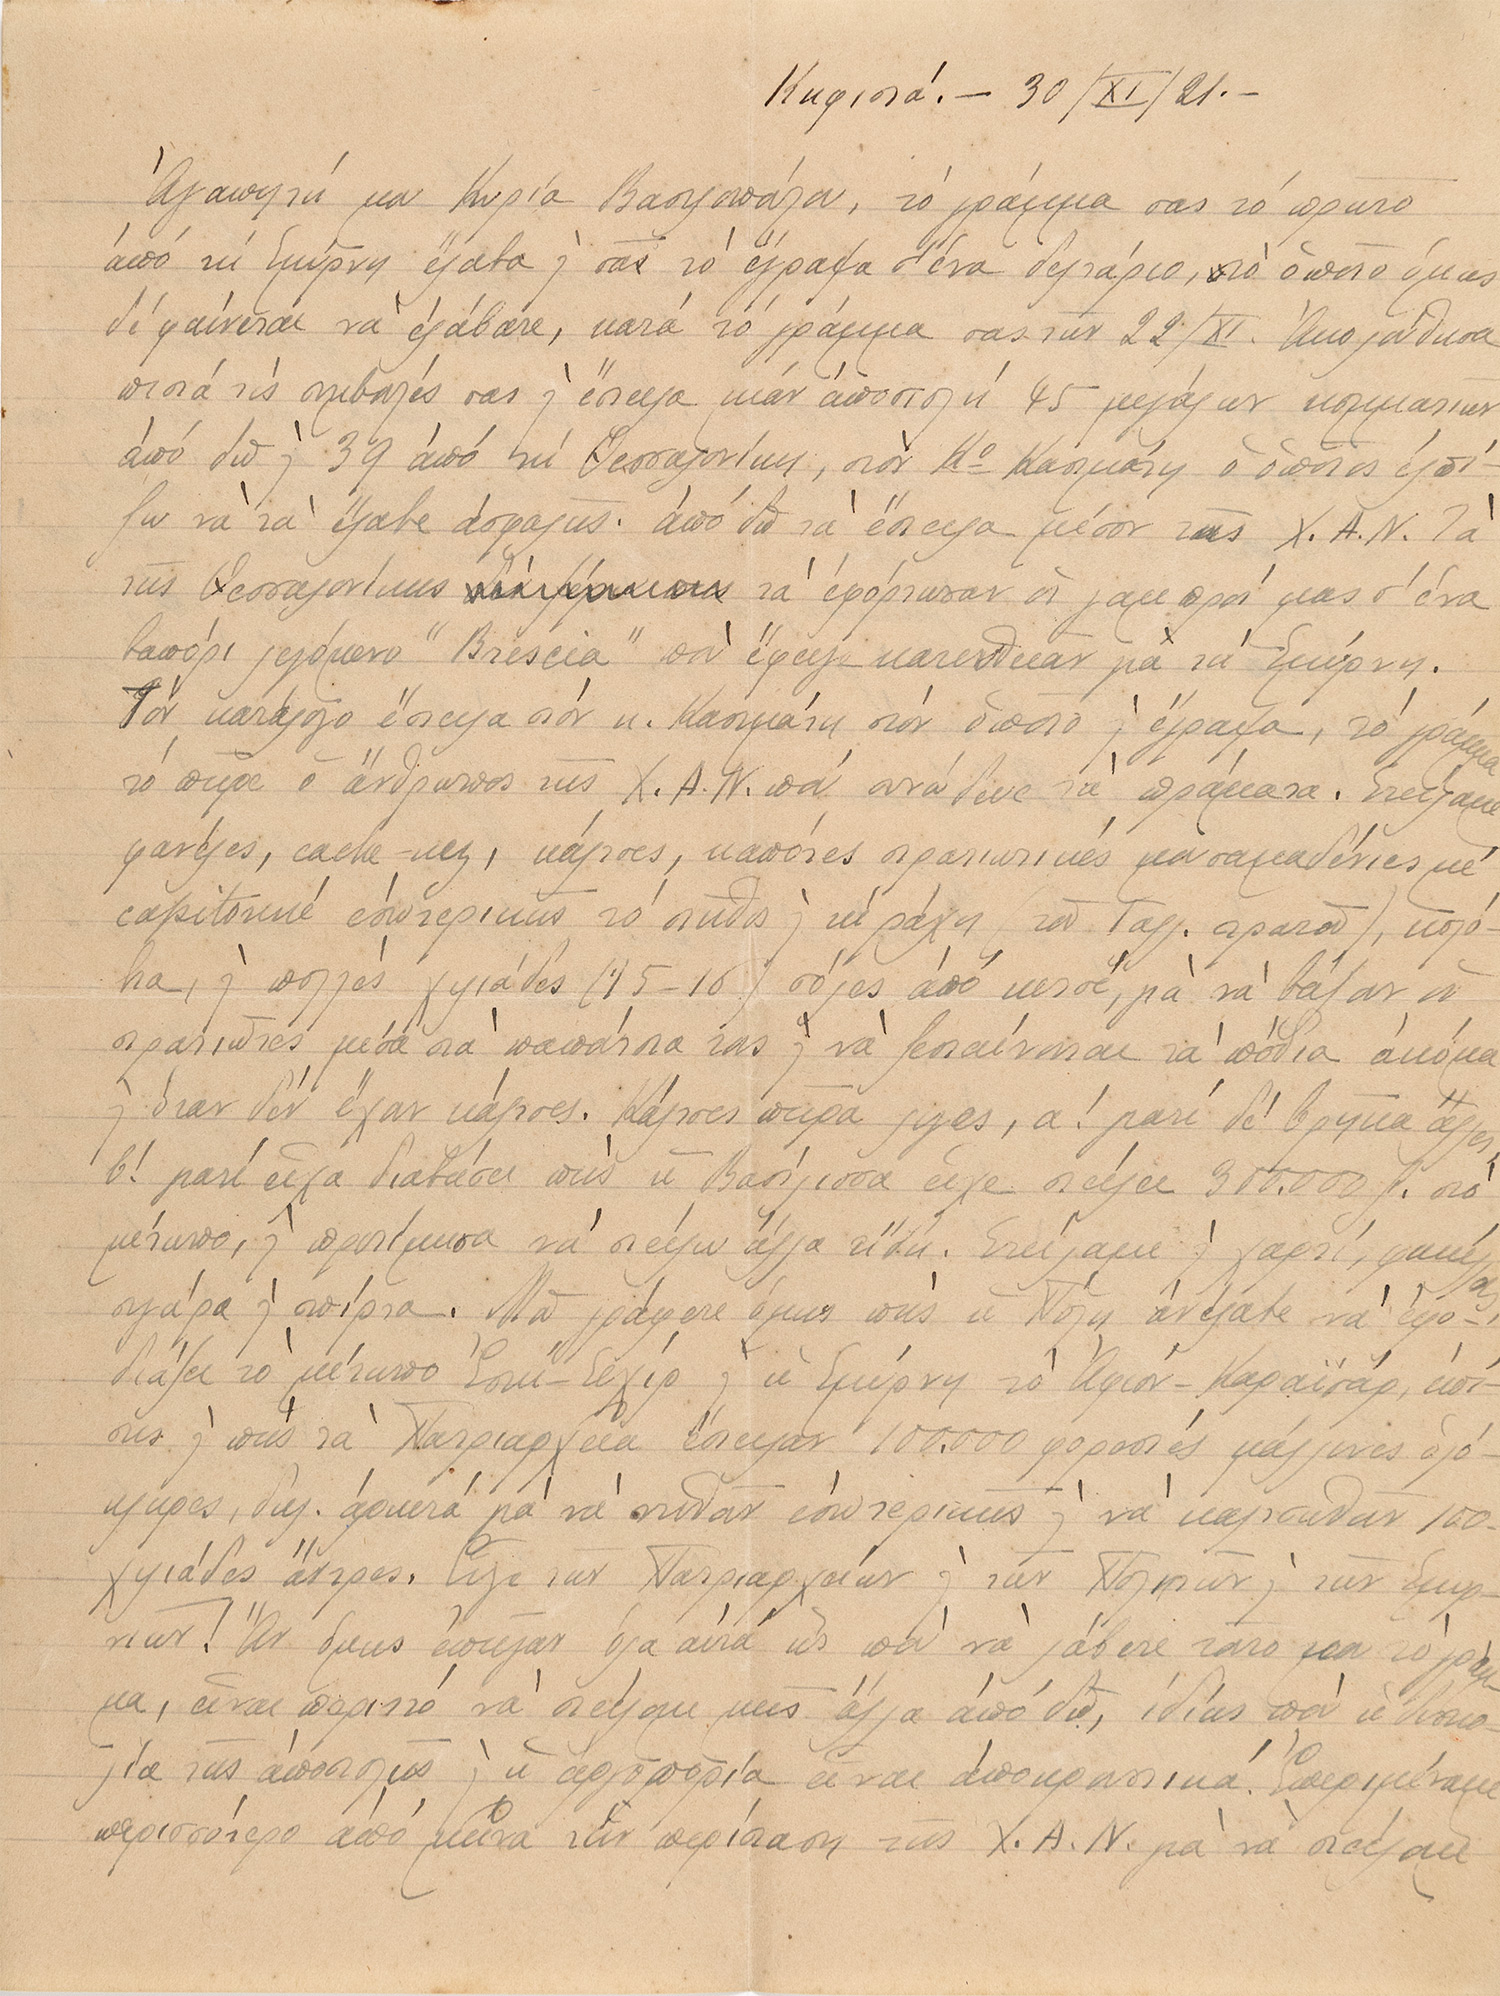 Κηφισιά. — 30/XI/21. —
Ἀγαπητή μου Κυρία Βασιλοπούλου, τό γράμμα σας τό πρῶτο
ἀπό τή Σμύρνη ἔλαβα κ σᾶς τό ἔγραψα σ' ἕνα δελτάριο, τό ὁποῖο ὅμως
δέ φαίνεται νά ἐλάβατε, κατά τό γράμμα σας τῶν 22/XI. Ἀκολούθησα
πιστά τίς συμβουλές σας κ ἔστειλα μιάν ἀποστολή 45 μεγάλων κομματιῶν
ἀπό δῶ κ 39 ἀπό τή Θεσσαλονίκη, στόν Κο Κασιμάτη ὁ ὁποῖος ἐλπί-
ζω νά τά ἔλαβε ἀσφαλῶς. ἀπό δῶ τά ἔστειλα μέσον τῆς Χ.Α.Ν. Τά
τῆς Θεσσαλονίκης τά ἐφόρτωσαν οἱ γαμπροί μας σ' ἕνα
βαπόρι λεγόμενο "Brescia" πού ἔφευγε κατευθεῖαν γιά τή Σμύρνη.
Τόν κατάλογο ἔστειλα στόν κ. Κασιμάτη στόν ὁποῖο κ ἔγραψα, τό γράμμα
τό πῆρε ὁ ἄνθρωπος τῆς Χ.Α.Ν. πού συνόδευε τά πράματα. Στείλαμε
φανέλες, cache-nez, κάλτσες, καπότες στρατιωτικές γιά σαμαδένιες μέ
capitonné ἐσωτερικῶς τό στῆθος κ τή ράχη (τοῦ Γαλλ. στρατοῦ), κολό-
βια, κ πολλές χιλιάδες (15-16) σόλες ἀπό κετσέ, γιά νά βάζουν οἱ
στρατιῶτες μέσα στά παπούτσια τους κ νά ζεσταίνονται τά πόδια ἀκόμα
κ ὅταν δέν ἔχουν κάλτσες. Κάλτσες πῆρα λίγες, α! γιατί δέ βρῆκα ἄλλες,
β! γιατί εἶχα διαβάσει πώς ἡ Βασίλισσα εἶχε στείλει 300.000 ζ. στό
μέτωπο, κ προτίμησα νά στείλω ἄλλα εἴδη. Στείλαμε κ χαρτί, φακέλους,
σιγάρα κ σπίρτα. Μοῦ γράφετε ὅμως πώς ἡ Πόλη ἀνέλαβε νά ἐφο-
διάσει τό μέτωπο Ἐσκή-Σεχίρ κ ἡ Σμύρνη τό Ἀφιόν-Καραϊσάρ, ἐπί-
σης κ πώς τά Πατριαρχεῖα ἔστειλαν 100.000 φορεσιές μάλλινες ὁλό-
κληρες, δηλ. ἀρκετά γιά νά ντυθοῦν ἐσωτερικῶς κ νά καλτσωθοῦν 100-
χιλιάδες ἄντρες. Εὖγε τῶν Πατριαρχείων κ τῶν Πολιτῶν κ τῶν Σμυρ-
νιῶν! Ἄν ὅμως ἐστείλαν ὅλα αὐτά ὥς πού νά λάβετε τοῦτο μου τό γράμ-
μα, εἶναι περιττό νά στείλουμε μεῖς ἄλλα ἀπό δῶ, ἰδίως πού ἡ δυσκο-
λία τῆς ἀποστολῆς κ ἡ ἀργοπορία εἶναι ἀποκρουστικά. Ἐπεριμέναμε
περισσότερο ἀπό μῆνα τήν περίσταση τῆς Χ.Α.Ν. γιά νά στείλουμε